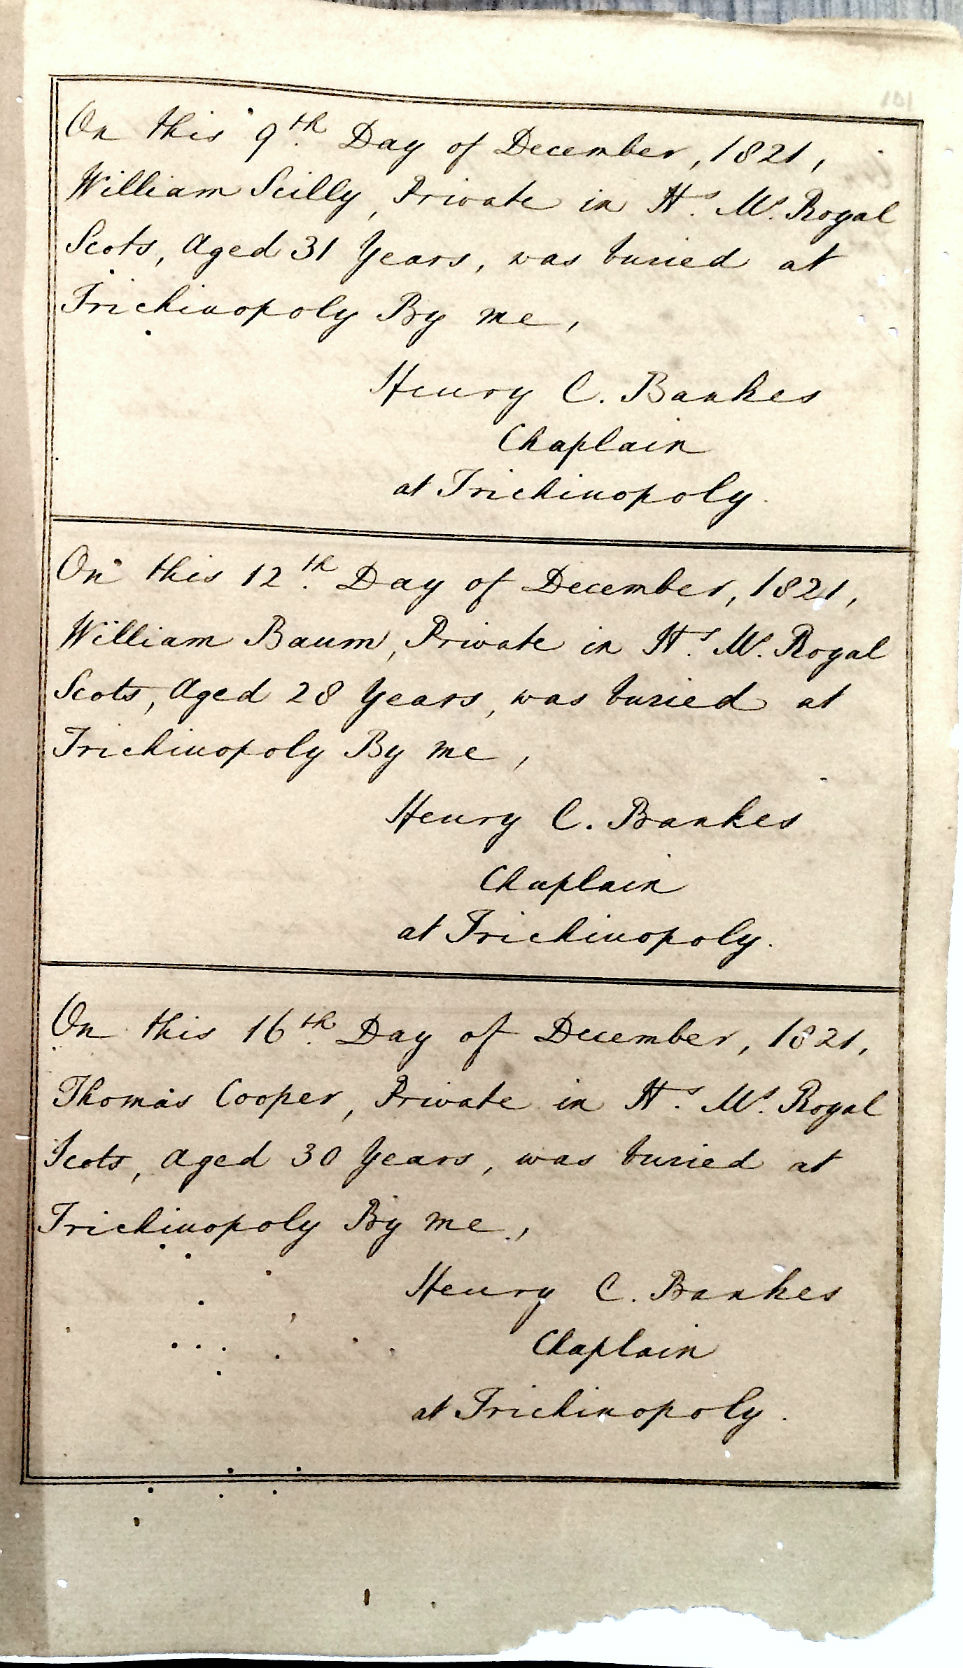 101
On this 9th Day of December, 1821,
William Scilly, Private in H.s M.s Royal
Scots, Aged 31 Years, was buried at
Trichinopoly By me,
Henry C. Bankes
Chaplain
at Trichinopoly.
On this 12th Day of December, 1821,
William Baum, Private in H.s M.s Royal
Scots, Aged 28 Years, was buried at
Trichinopoly By me,
Henry C. Bankes
Chaplain
at Trichinopoly.
On this 16th Day of December, 1821,
Thomas Cooper, Private in H.s M.s Royal
Scots, Aged 30 Years, was buried at
Trichinopoly By me,
Henry C. Bankes
Chaplain
at Trichinopoly.